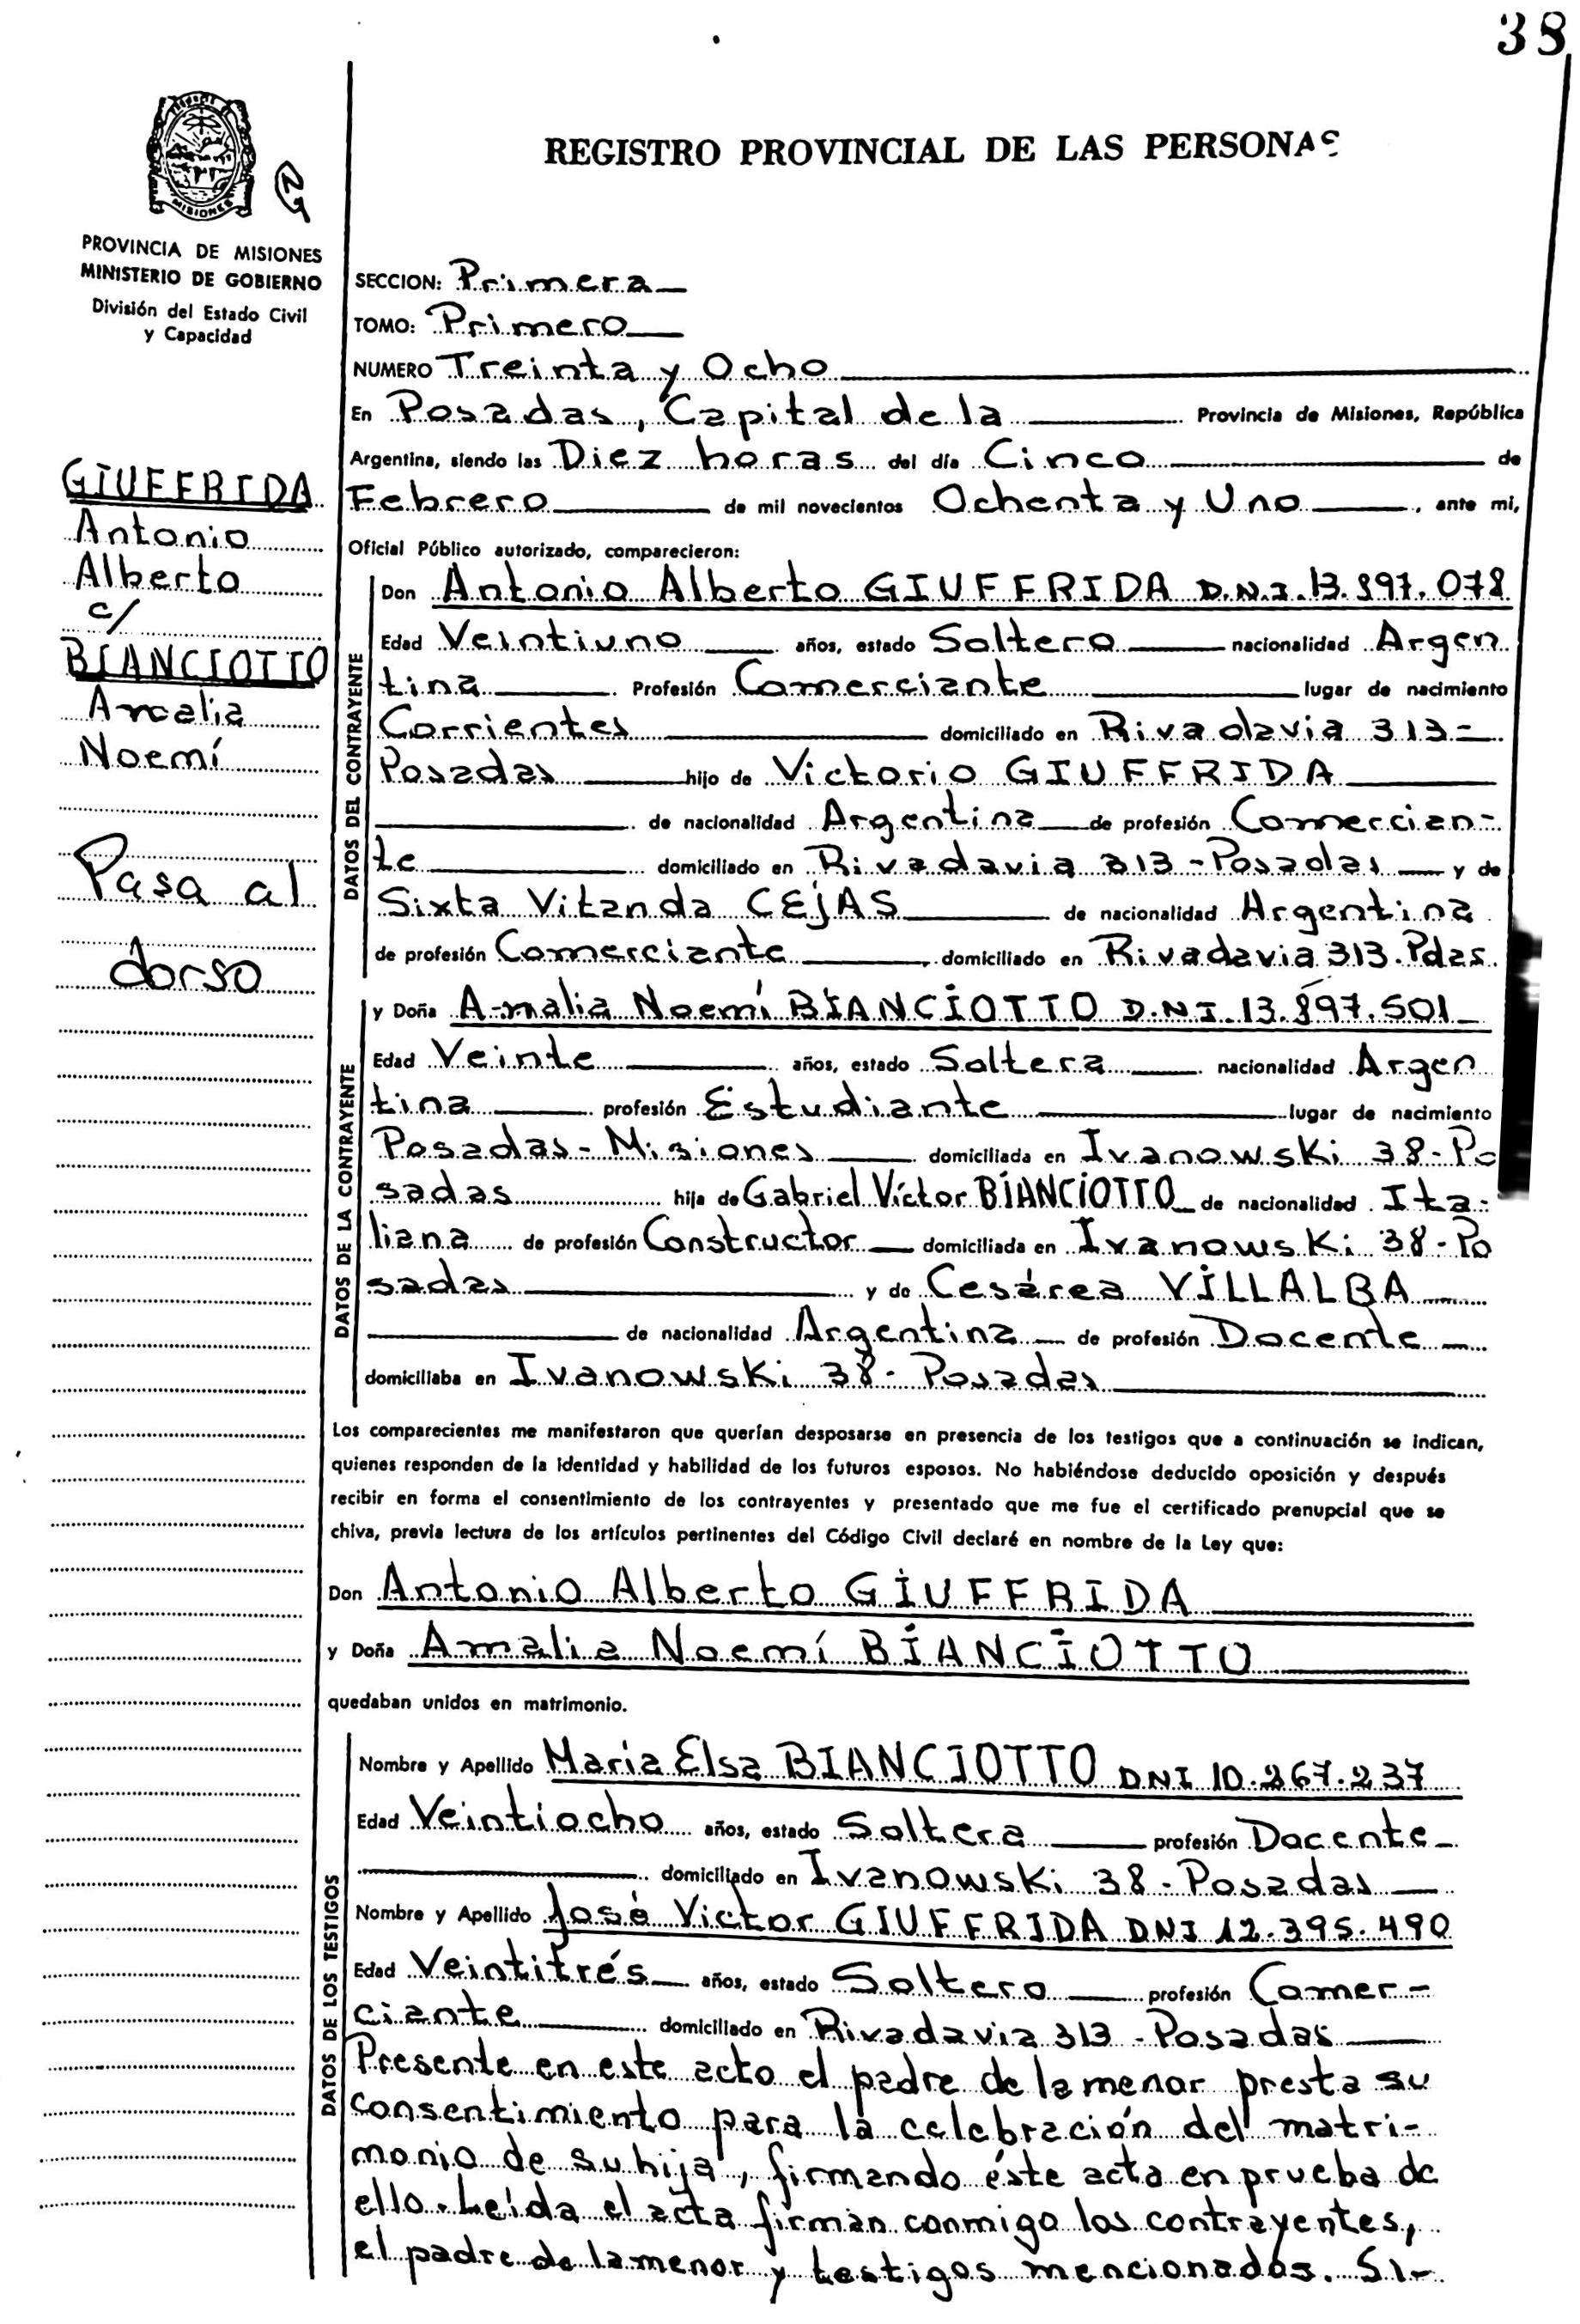 38
REGISTRO PROVINCIAL DE LAS PERSONAS
MISIONES
PROVINCIA DE MISIONES
MINISTERIO DE GOBIERNO
División del Estado Civil
y Capacidad
GIUFFRIDA
Antonio
Alberto
c/
BIANCIOTTO
Amalia
Noemí
Pasa al
dorso
SECCION: Primera
TOMO: Primero
NUMERO Treinta y Ocho
En Posadas, Capital de la Provincia de Misiones, República
Argentina, siendo las Diez horas del día Cinco de
Febrero de mil novecientos Ochenta y Uno, ante mi,
Oficial Público autorizado, comparecieron:
DATOS DEL CONTRAYENTE
Don Antonio Alberto GIUFFRIDA D.N.I. 13.897.078
Edad Veintiuno años, estado Soltero nacionalidad Argen
tina Profesión Comerciante lugar de nacimiento
Corrientes domiciliado en Rivadavia 313-
Posadas hijo de Victorio GIUFFRIDA
de nacionalidad Argentina de profesión Comercian-
te domiciliado en Rivadavia 313-Posadas y de
Sixta Vitanda CEJAS de nacionalidad Argentina
de profesión Comerciante, domiciliado en Rivadavia 313. Pdas.
DATOS DE LA CONTRAYENTE
y Doña Amalia Noemí BIANCIOTTO D.N.I 13.897.501
Edad Veinte años, estado Soltera nacionalidad Argen
tina profesión Estudiante lugar de nacimiento
Posadas-Misiones domiciliada en Ivanowski 38-Po
sadas hija de Gabriel Víctor BIANCIOTTO de nacionalidad Ita-
liana de profesión Constructor domiciliada en Ivanowski 38-Po
sadas y de Cesárea VILLALBA
de nacionalidad Argentina de profesión Docente
domiciliaba en Ivanowski 38- Posadas
Los comparecientes me manifestaron que querían desposarse en presencia de los testigos que a continuación se indican,
quienes responden de la identidad y habilidad de los futuros esposos. No habiéndose deducido oposición y después
recibir en forma el consentimiento de los contrayentes y presentado que me fue el certificado prenupcial que se
chiva, previa lectura de los artículos pertinentes del Código Civil declaré en nombre de la Ley que:
Don Antonio Alberto GIUFFRIDA
y Doña Amalia Noemí BIANCIOTTO
quedaban unidos en matrimonio.
DATOS DE LOS TESTIGOS
Nombre y Apellido María Elsa BIANCIOTTO DNI 10.267.237
Edad Veintiocho años, estado Soltera profesión Docente
domiciliado en Ivanowski 38-Posadas
Nombre y Apellido José Victor GIUFFRIDA DNI 12.395.490
Edad Veintitrés años, estado Soltero profesión Comer-
ciante domiciliado en Rivadavia 313 -Posadas
Presente en este acto el padre de la menor presta su
consentimiento para la celebración del matri-
monio de su hija, firmando éste acta en prueba de
ello. Leída el acta firman conmigo los contrayentes,
el padre de la menor y testigos mencionados. Si-